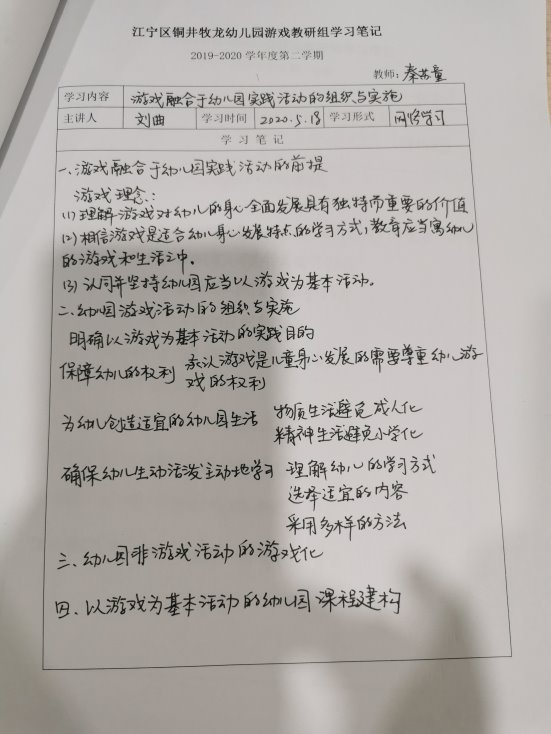 江宁区铜井牧龙幼儿园游戏教研组学习笔记
2019-2020 学年度第二学期
教师:秦苏童
学习内容 游戏融合于幼儿园实践活动的组织与实施
主讲人 刘曲 学习时间 2020.5.18 学习形式 网络学习
学 习 笔 记
一、游戏融合于幼儿园实践活动的前提
游戏理念:
(1) 理解游戏对幼儿的身心全面发展具有独特而重要的价值
(2) 相信游戏是适合幼儿身心发展特点的学习方式,教育应当寓幼儿
的游戏和生活之中。
(3) 认同并坚持幼儿园应当以游戏为基本活动。
二、幼儿园游戏活动的组织与实施
明确以游戏为基本活动的实践目的
保障幼儿的权利 承认游戏是儿童身心发展的需要尊重幼儿游
戏的权利
为幼儿创造适宜的幼儿园生活 物质生活避免成人化
精神生活避免小学化
确保幼儿生动活泼主动地学习 理解幼儿的学习方式
选择适宜的内容
采用多样的方法
三、幼儿园非游戏活动的游戏化
四、以游戏为基本活动的幼儿园课程建构